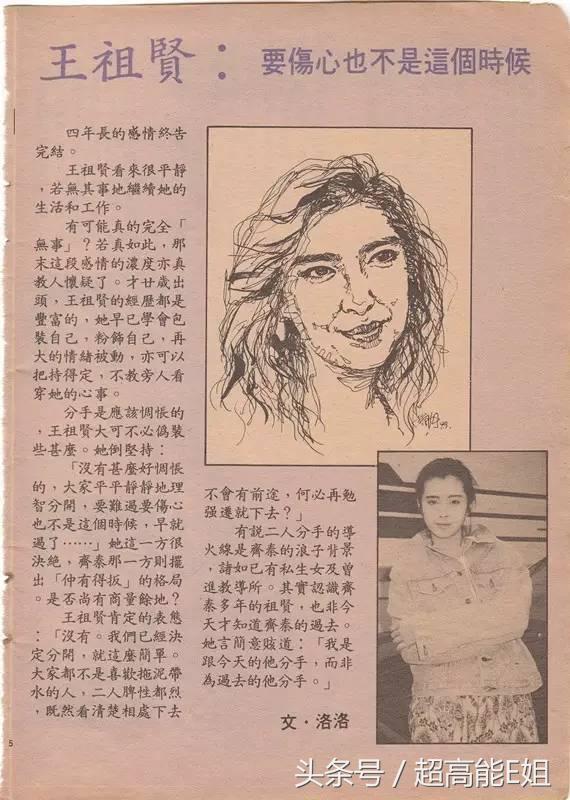 王祖賢：要傷心也不是這個時候
四年長的感情終告
完結。
王祖賢看來很平靜
，若無其事地繼續她的
生活和工作。
有可能真的完全「
無事」？若真如此，那
末這段感情的濃度亦真
教人懷疑了。才廿歲出
頭，王祖賢的經歷都是
豐富的，她早已學會包
裝自己，粉飾自己，再
大的情緒被動，亦可以
把持得定，不教旁人看
穿她的心事。
分手是應該惆悵的
，王祖賢大可不必偽裝
些甚麼。她倒堅持：
「沒有甚麼好惆悵
的，大家平平靜靜地理
智分開，要難過要傷心
也不是這個時候，早就
過了……」她這一方很
決絶，齊泰那一方則擺
出「仲有得扳」的格局
。是否尚有商量餘地？
王祖賢肯定的表態
：「沒有。我們已經決
定分開，就這麼簡單。
大家都不是喜歡拖泥帶
水的人，二人脾性都烈
，既然看清楚相處下去
不會有前途，何必再勉
强遷就下去？」
有説二人分手的導
火線是齊泰的浪子背景
，諸如已有私生女及曾
進教導所。其實認識齊
泰多年的祖賢，也非今
天才知道齊泰的過去。
她言簡意賅道：「我是
跟今天的他分手，而非
為過去的他分手。」
文·洛洛
5
头条号 / 超高能E姐